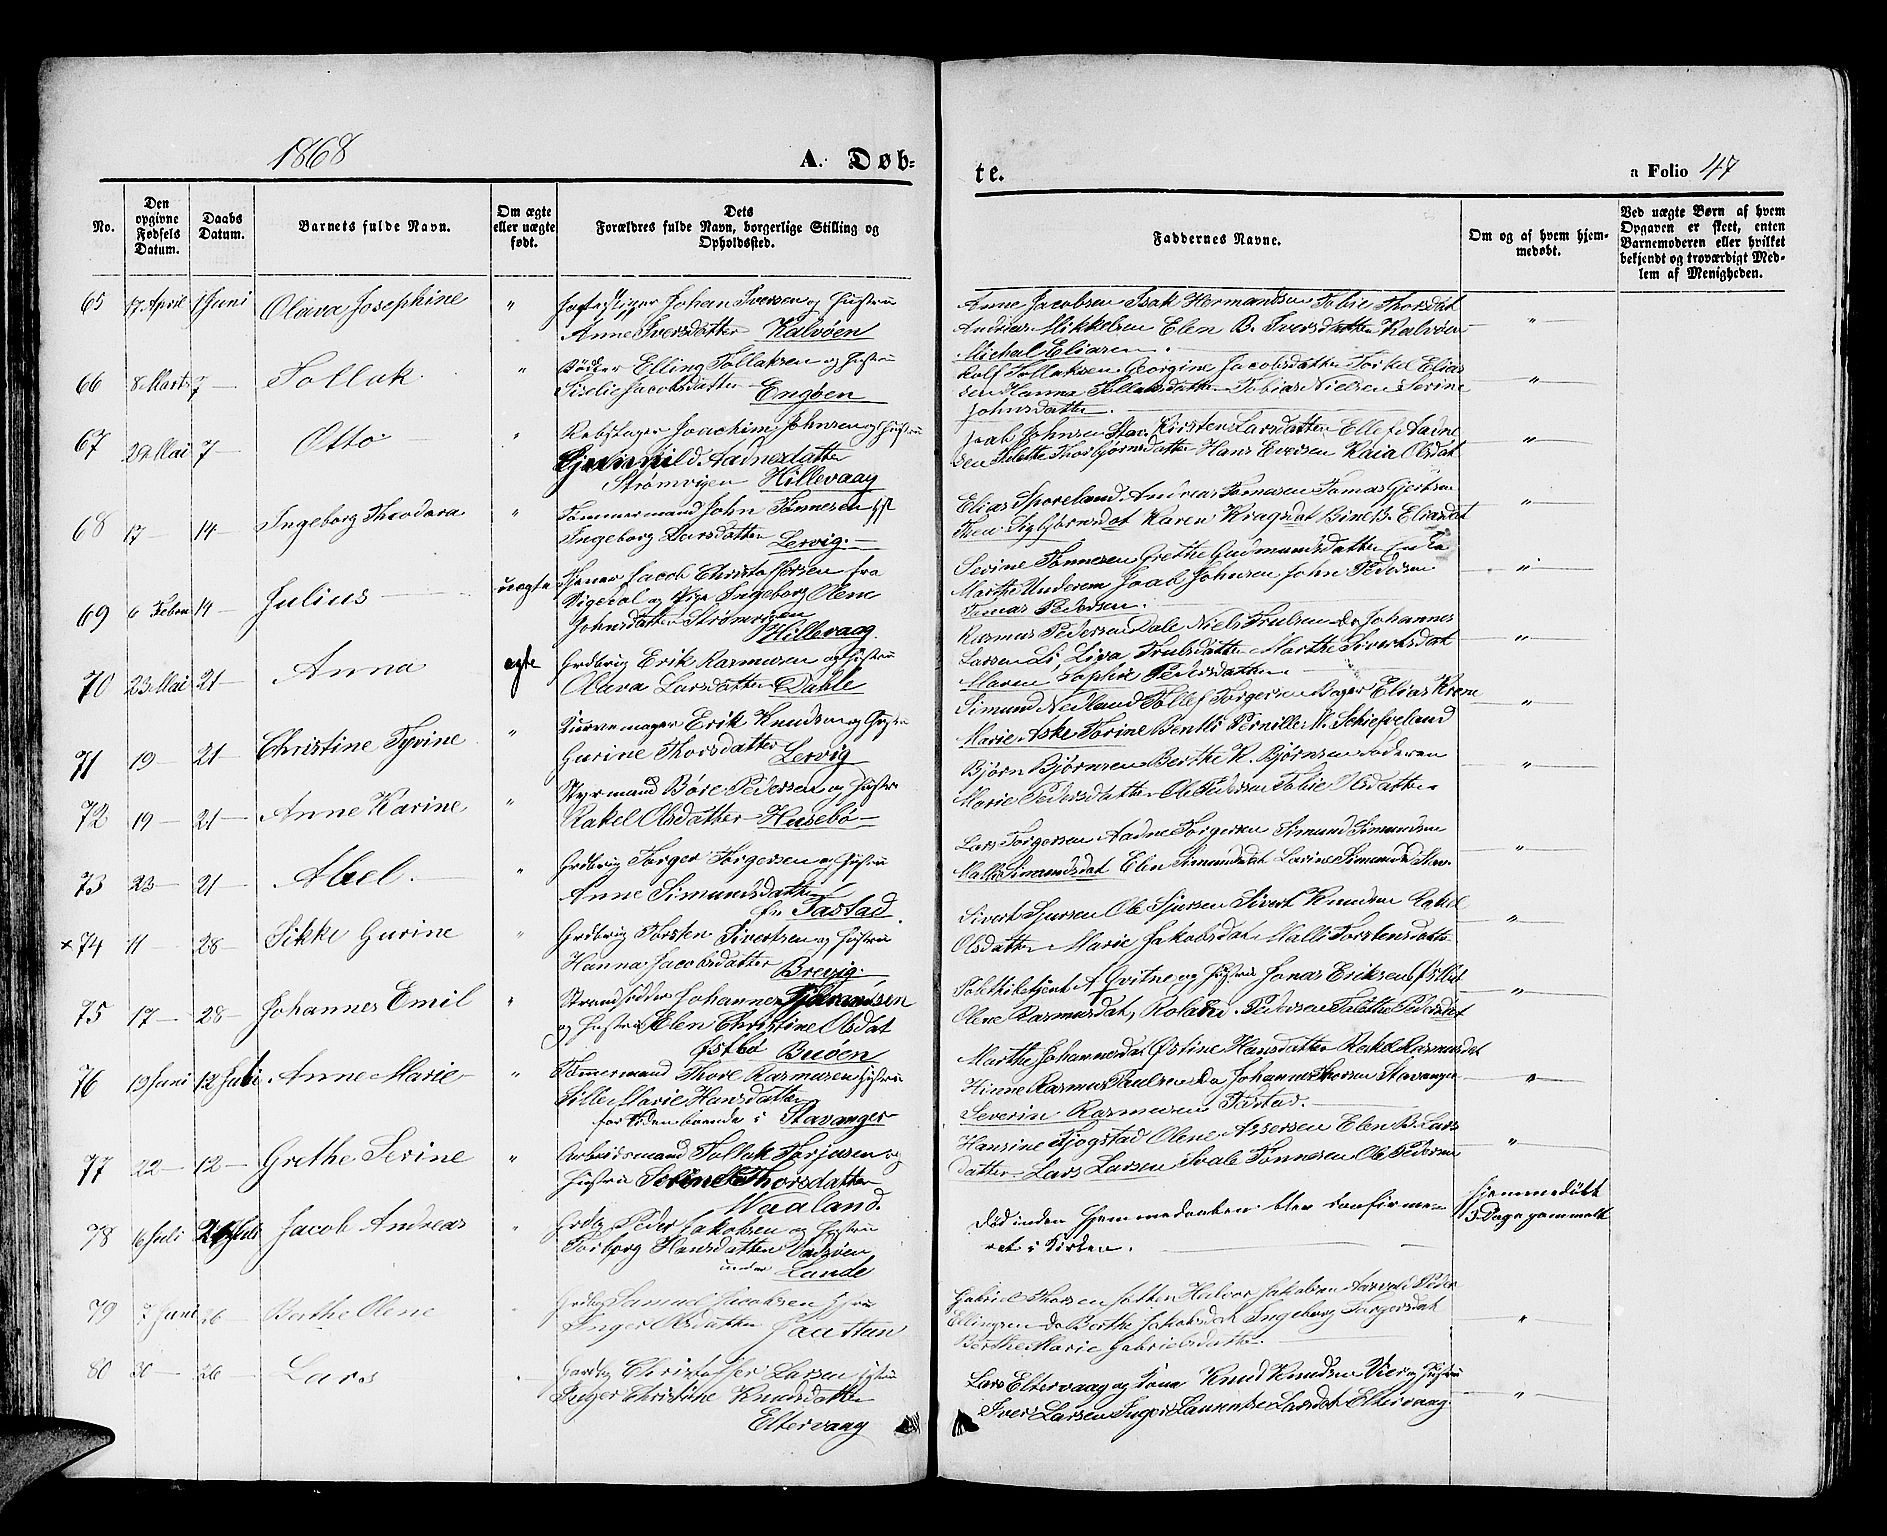 1868
A. Døb-
te.
a Folio 47
No.
Den opgivne Fødsels Datum.
Daabs Datum.
Barnets fulde Navn.
Om ægte eller uægte født.
Dets Forældres fulde Navn, borgerlige Stilling og Opholdssted.
Faddernes Navne.
Om og af hvem hjemmedøbt.
Ved uægte Børn af hvem Opgaven er skeet, enten Barnemoderen eller hvilket bekjendt og troværdigt Medlem af Menigheden.
65 17 April 1 Juni Olava Josephine " Johan Iversen og Hustru
Anne Iversdatter Kalvøen
Anne Jacobsen Isak Hermandsen Thorsdat
Andreas Mikkelsen Elen B. Iversdatter Kalvøen "
Michal Eliasen.
66 8 Marts 7 Tollak " Bødker Elling Tollaksen og Hustru
Siselie Jacobsdatter Engøen
Rolf Tollaksen Georgine Jacobsdatter Torkel Elias
sen Hanna Tollaksdatter Tobias Nielsen Serine "
Johnsdatter.
67 29 Mai 7 Otto " Rebslager Joachim Johnsen og Hustru
Aadnesdatter
Strømvigen Hillevaag
Jaab Johnsen Kirsten Larsdatter Ellef Aadne
sen Thorbjørnsdatter Hans Eversen Kaia Olsdat "
68 17 14 Ingeborg Theodora " Tømmermand John Tønnesen
Ingeborg Larsdatter Lervig.
Elias Sporeland Andreas Tønnesen Tomas Gjertsen "
Thea Karen Kragsdat Bine B. Eliasdat
69 6 Febru 14 Julius uægte Tjener Jacob Christoffersen fra
Vigedal og Pige Ingeborg Olene
Johnsdatter Strømvigen
Hillevaag.
Serine Tønnesen Grethe Gudmundsdatter Enke
Marthe Undereim Jaab Johnsen John Pedersen "
Tomas Pedersen.
70 23 Mai 21 Anna egte Grdbrug Erik Rasmusen og Hustru
Olava Larsdatter Dahle
Rasmus Pedersen Dale Niels Trulsen do Johannes
Larsen Li, Liva Trulsdatter Marthe Sivertsdat "
Maren Sophie Pedersdatter
71 19 21 Christine Tyvine " Buntmager Erik Knudsen og Hustru
Gurine Thorsdatter Lervig
Simund Nedland Tollef Torgersen Bager Elias Krone "
Marie Aske Torine Bentli Pernille M. Schiefveland
72 19 21 Anne Karine " Styrmand Børe Pedersen og Hustru
Rakel Olsdatter Husebø
Bjørn Bjørnsen Berthe K. Bjørnsen Føderen "
Marie Pedersdatter Ole Pedersen Tobie Olsdatter
73 23 21 Abel. " Grdbrug Torger Torgersen og Hustru
Anne Simundsdatter
Tastad
Lars Torgersen Aadne Torgersen Simund Simundsen
Malli Simundsdat Elen Simundsdat Larine Simundsd "
x 74 11 28 Sikke Gurine " Grdbrug Torsten Sivertsen og Hustru
Hanna Jacobsdatter Brevig.
Sivert Sjursen Ole Sjursen Sivert Knudsen Rakel
Olsdatter Marie Jakobsdat Malli Torstensdatter "
75 17 28 Johannes Emil " Strandsidder Johannes
og Hustru Elen Christine Olsdat
Østbø Buøen
Politibetjent A. Qvitne og Hustru Jonas Eriksen Østbø
Olene Rasmusdat, Pedersen Pedersdat "
76 13 Juni 12 Juli Anne Marie " Tømmermand Thore Rasmusen Hustru
Sille Marie Hansdatter
for tiden boende i Stavanger
Marthe Johannesdat Østine Hansdatter Rakel Rasmusdat
Hinne Rasmus Paulsen do Johannes Thorsen Stavanger "
Severin Rasmusen Tastad.
77 22 12 Grethe Serine " Arbeidsmand Tollak Torjusen og
Hustru Serine Thorsdatter
Waaland.
Hansine Tjogstad Olene Assersen Elen B. Lars "
datter. Lars Larsen Svale Tønnesen Ole Pedersen
78 6 Juli 26 Juli Jacob Andreas " Grdbg Peder Jakobsen og Hustru
Torborg Hansdatter
under Lande
Død inden Hjemmedaaben blev confirme-
ret i Kirken.
hjemmedøbt
3 Dage gammelt
79 7 Juni 26 Berthe Olene Grdbg Samuel Jacobsen Hustru
Inger Olsdatter
Gabriel Thorsen Halvor Jakobsen Peder
Ellingsen do Berthe Jakobsdat Ingeborg Torgersdat "
Berthe Marie Gabrielsdatter
80 30 26 Lars Gaardbg Christoffer Larsen Hustru
Inger Christine Knudsdatter
Eltervaag
Lars Eltervaag og Kone Knud Knudsen Vier og Hustru
Iver Larsen Inger Laurentse Larsdat Eltervaag "